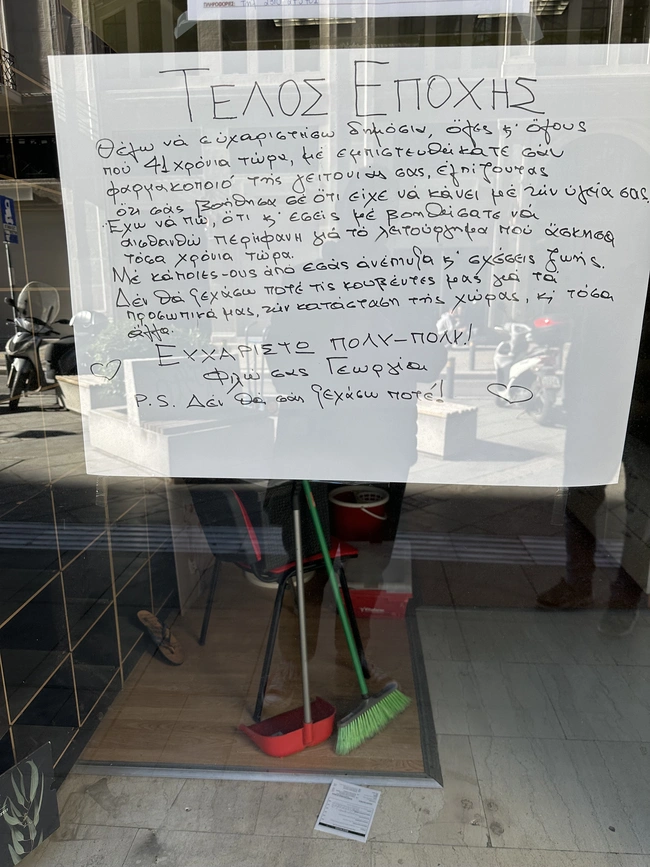 ΠΛΗΡΟΦΟΡΙΕΣ:
ΤΕΛΟΣ ΕΠΟΧΗΣ
Θέλω νά εὐχαριστήσω δημόσια, ὅλες κ' ὅλους
πού 41 χρόνια τώρα, μέ ἐμπιστευθήκατε σάν
φαρμακοποιό τῆς γειτονιᾶς σας, ἐλπίζοντας
ὅτι σᾶς βοήθησα σέ ὅτι εἶχε νά κάνει μέ τήν ὑγεία σας.
Ἔχω νά πῶ, ὅτι κ' ἐσεῖς μέ βοηθήσατε νά
αἰσθανθῶ περήφανη γιά τό λειτούργημα πού ἄσκησα
τόσα χρόνια τώρα.
Μέ κάποιες-ους ἀπό ἐσᾶς ἀνέπτυξα κ' σχέσεις ζωῆς.
Δέν θά ξεχάσω ποτέ τίς κουβέντες μας γιά τά
προσωπικά μας, τήν κατάσταση τῆς χώρας, κ' τόσα
ἄλλα.
ΕΥΧΑΡΙΣΤΩ ΠΟΛΥ-ΠΟΛΥ!
Φιλώ σας Γεωργία
P.S. Δέν θά σᾶς ξεχάσω ποτέ!